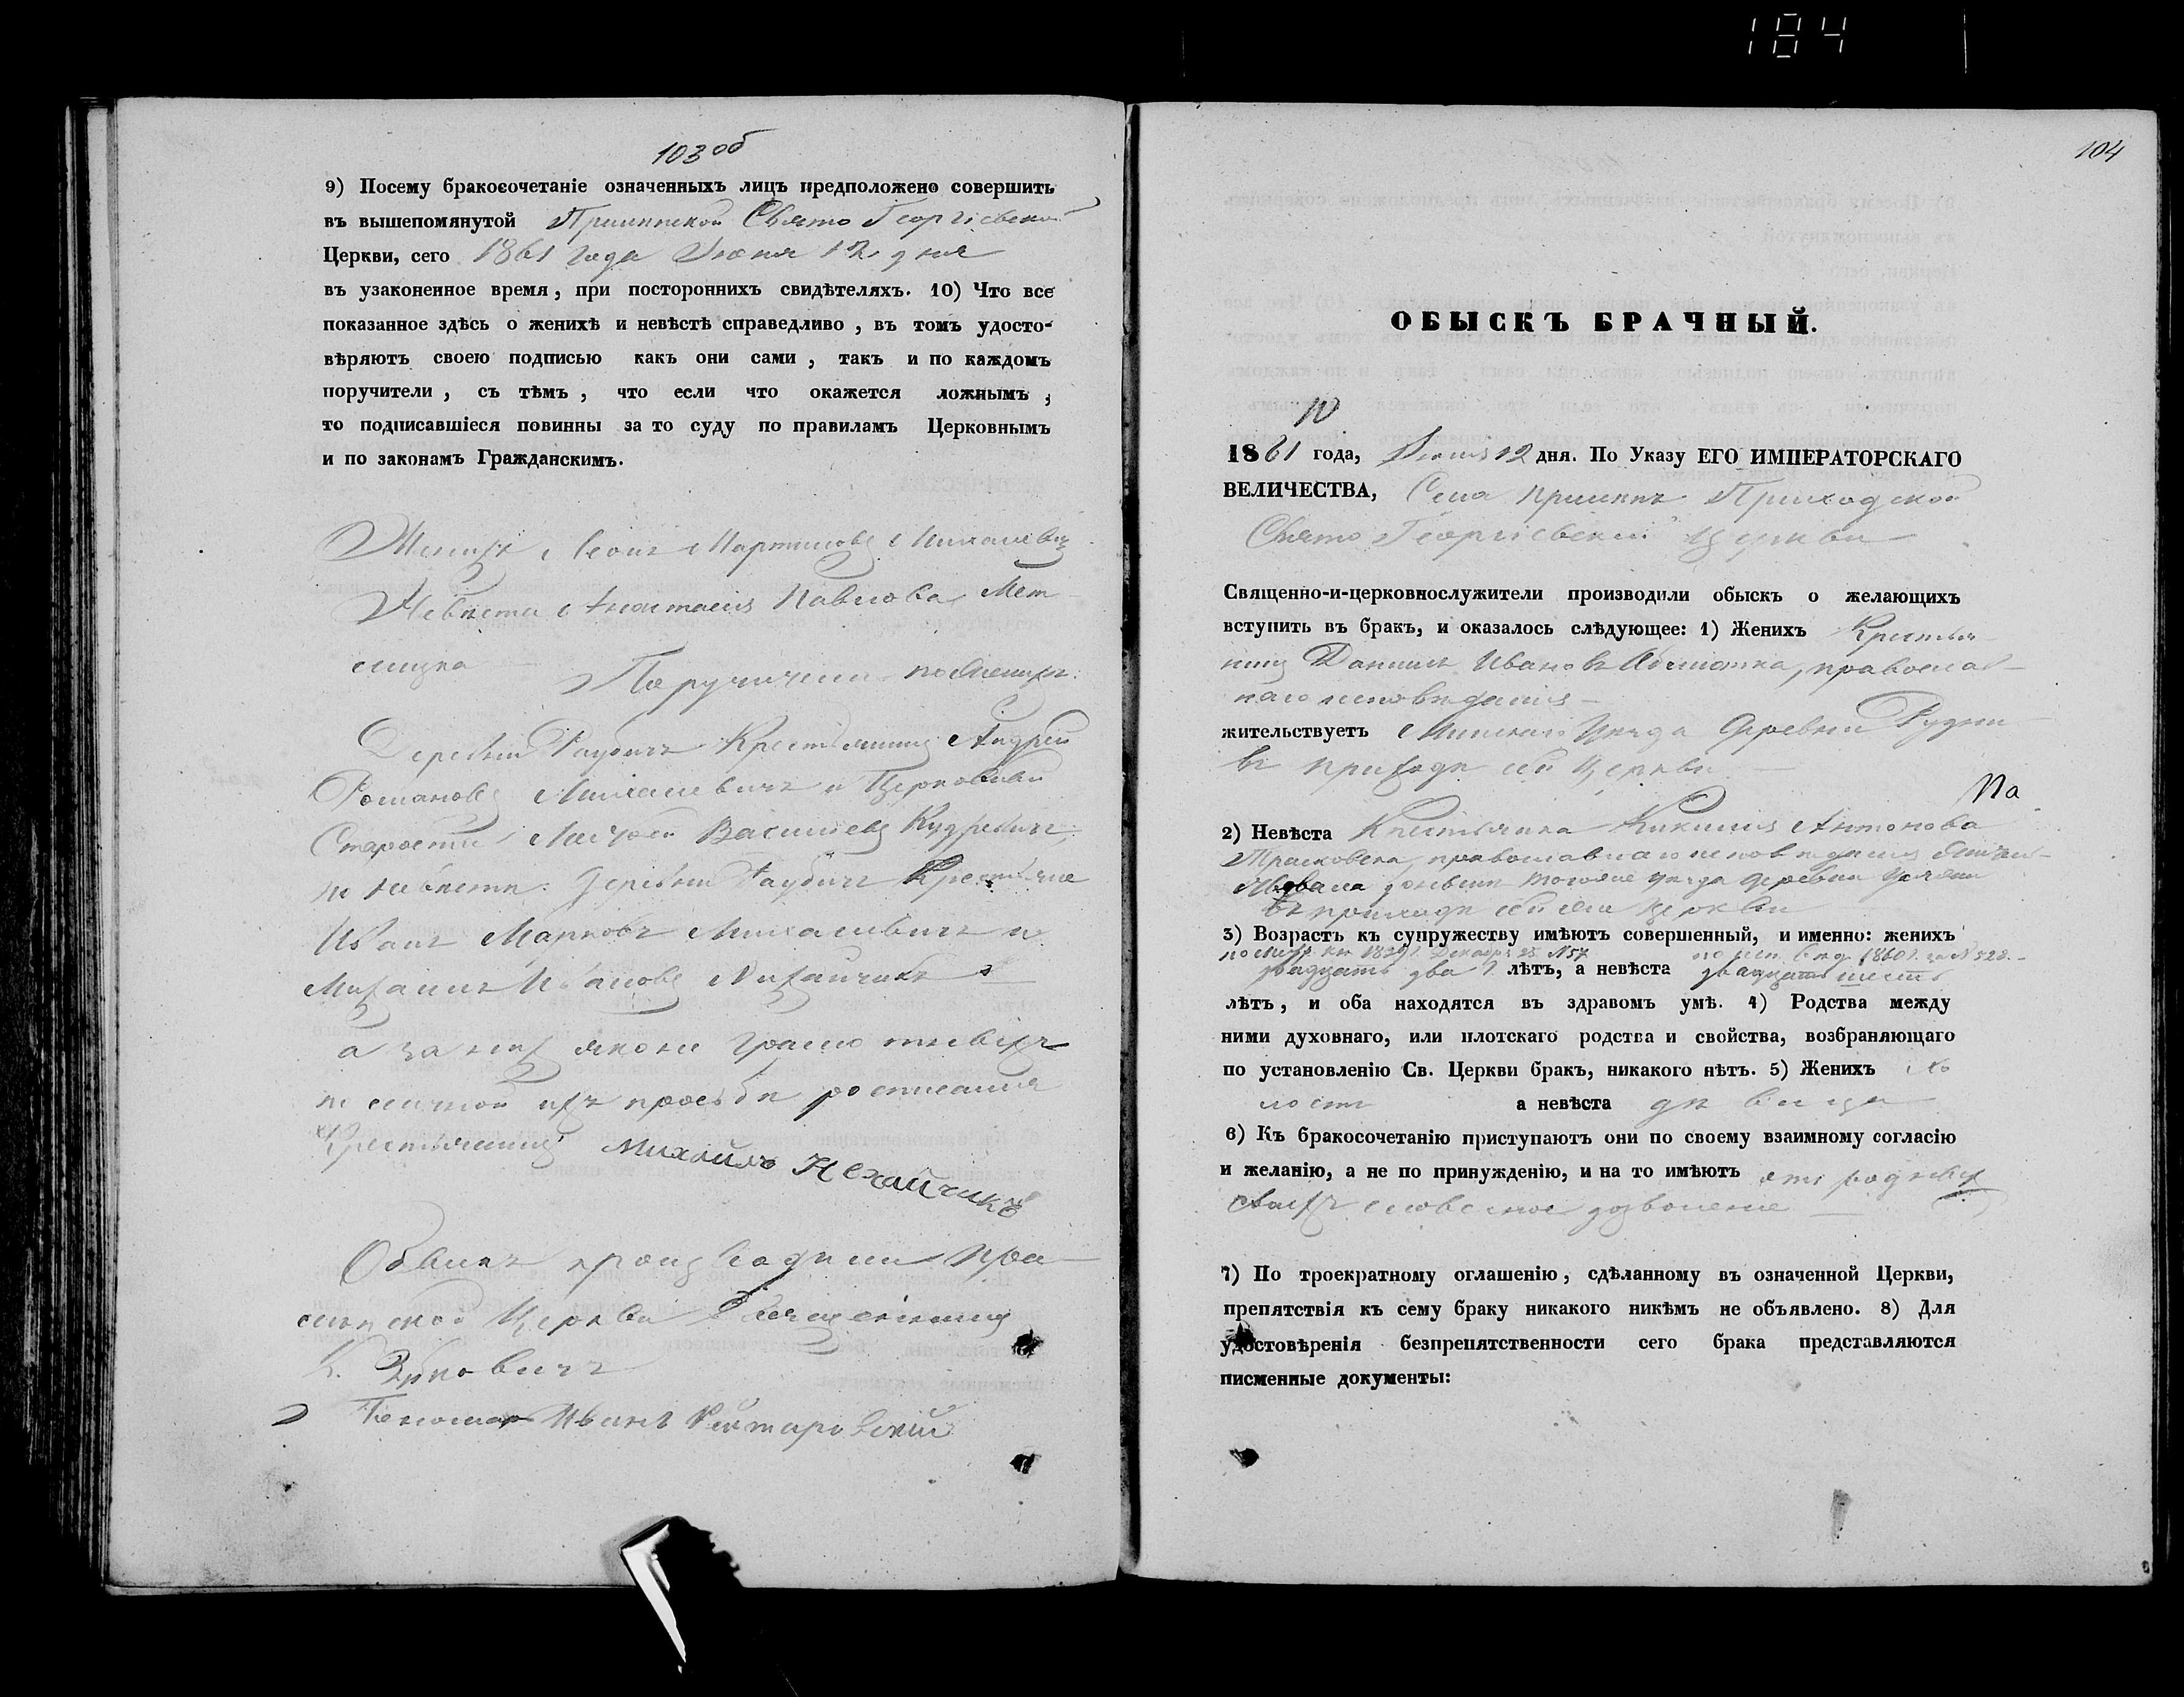 184
103 об
9) Посему бракосочетаніе означенныхъ лицъ предположено совершить
въ вышепомянутой Свято Георгіевской
Церкви, сего 1861 года Іюня 12 дня
въ узаконенное время, при постороннихъ свидѣтеляхъ. 10) Что все
показанное здѣсь о женихѣ и невѣстѣ справедливо, въ томъ удосто-
вѣряютъ своею подписью какъ они сами, такъ и по каждомъ
поручители, съ тѣмъ, что если что окажется ложнымъ,
то подписавшіеся повинны за то суду по правиламъ Церковнымъ
и по законамъ Гражданскимъ.
Женихъ Леонъ Мартиновъ
Невѣста Анастасія Павлова
Поручители по Женихѣ:
Деревни Раубичъ Крестьянинъ Андрей
Романовъ Михалевичъ и Церковный
Староста Василіевъ
по невѣстѣ: Деревни Раубичъ Крестьяне
Иванъ Марковъ Михалевичъ и
Михаилъ Ивановъ
а за нихъ яко не грамотныхъ
по личной ихъ просьбѣ росписался
Крестьянинъ Михаилъ Нехайчикъ
Обыскъ производили
Церкви Священникъ
Пономарь Иванъ
104
ОБЫСКЪ БРАЧНЫЙ.
10
1861 года, Іюня 12 дня. По Указу ЕГО ИМПЕРАТОРСКАГО
ВЕЛИЧЕСТВА, Села Приходской
Свято Георгіевской Церкви
Священно-и-церковнослужители производили обыскъ о желающихъ
вступить въ бракъ, и оказалось слѣдующее: 1) Женихъ Крестья-
нинъ Даніилъ Ивановъ православ-
наго исповѣданія
жительствуетъ Минскаго Уѣзда Деревни Рудни
въ приходѣ сей Церкви
2) Невѣста Крестьянка Антонова
православнаго исповѣданія
донынѣ того же уѣзда деревни
въ приходѣ сей же церкви
3) Возрастъ къ супружеству имѣютъ совершенный, и именно: женихъ
двадцать два лѣтъ, а невѣста двадцать шесть
лѣтъ, и оба находятся въ здравомъ умѣ. 4) Родства между
ними духовнаго, или плотскаго родства и свойства, возбраняющаго
по установленію Св. Церкви бракъ, никакого нѣтъ. 5) Женихъ хо
лостъ а невѣста дѣвица
6) Къ бракосочетанію приступаютъ они по своему взаимному согласію
и желанію, а не по принужденію, и на то имѣютъ отъ родныхъ
своихъ словесное дозволеніе
7) По троекратному оглашенію, сдѣланному въ означенной Церкви,
препятствія къ сему браку никакого никѣмъ не объявлено. 8) Для
удостовѣренія безпрепятственности сего брака представляются
писменные документы: